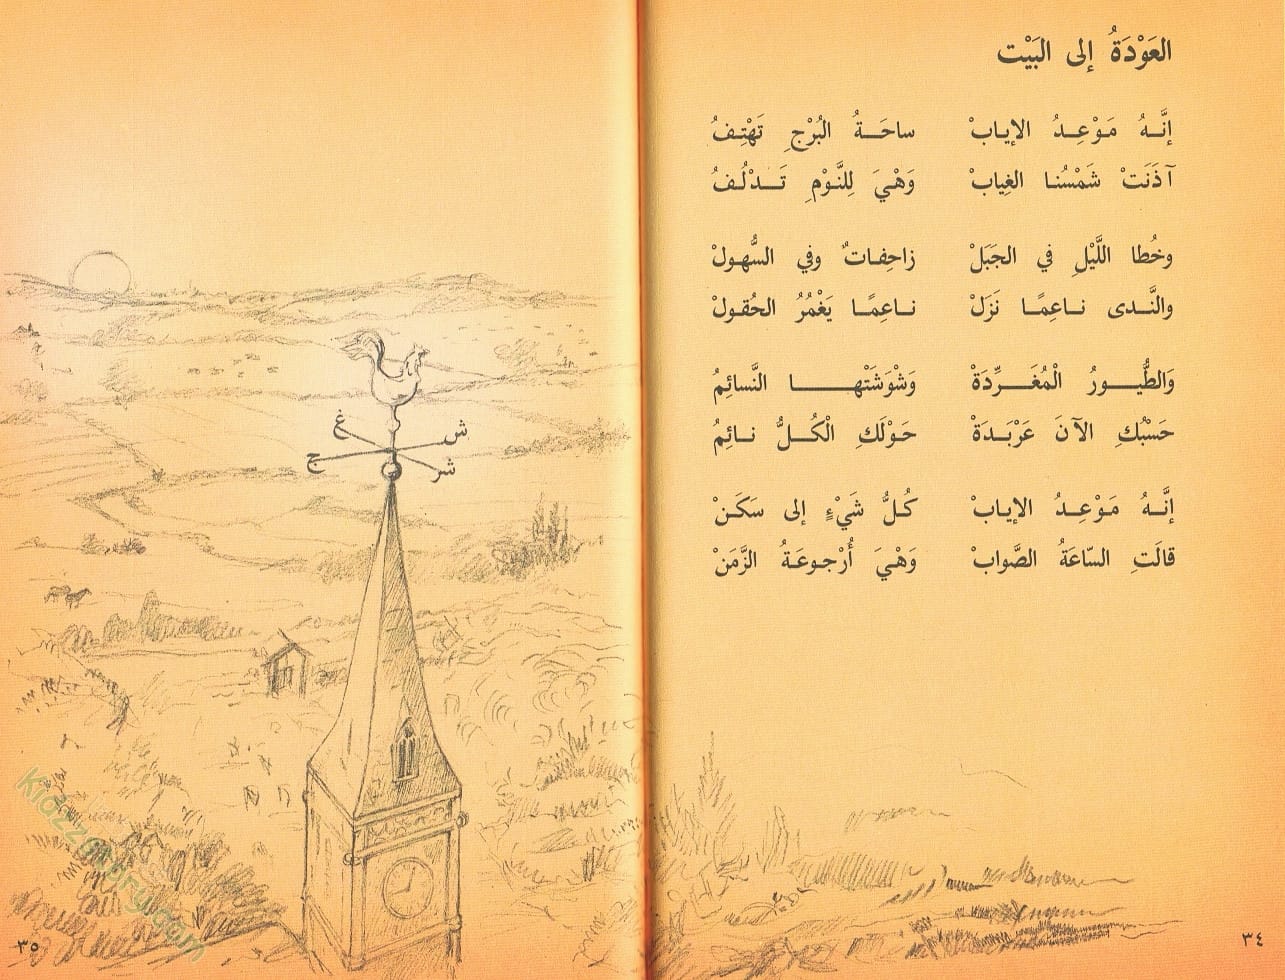 العَوْدَةُ إلى البَيْت
إنَّهُ مَوْعِدُ الإيابْ ساحَةُ البُرْجِ تَهْتِفُ
آذَنَتْ شَمْسُنا الغِيابْ وَهْيَ لِلنَّوْمِ تَدْلُفُ
وخُطا اللَّيْلِ في الجَبَلْ زاحِفاتٌ وفي السُّهولْ
والنَّدى ناعِمًا نَزَلْ ناعِمًا يَغْمُرُ الحُقولْ
وَالطُّيورُ الْمُغَرِّدَةْ وَشْوَشَتْها النَّسائِمُ
حَسْبُكِ الآنَ عَرْبَدَةْ حَوْلَكِ الْكُلُّ نائِمُ
إنَّهُ مَوْعِدُ الإيابْ كُلُّ شَيْءٍ إلى سَكَنْ
قالَتِ السّاعَةُ الصَّوابْ وَهْيَ أُرْجوعَةُ الزَّمَنْ
٣٤
غ ش
ج شر
٣٥